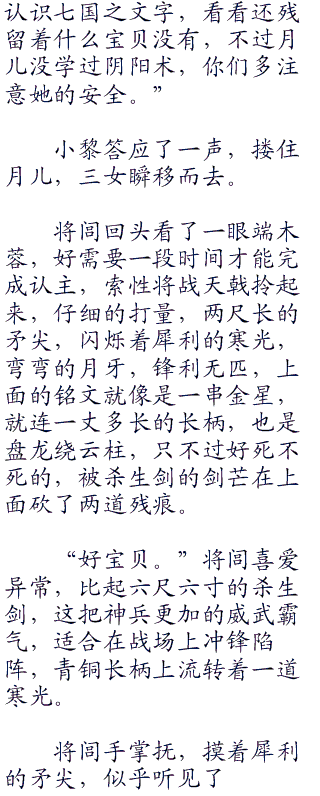 认识七国之文字，看看还残
留着什么宝贝没有，不过月
儿没学过阴阳术，你们多注
意她的安全。”
小黎答应了一声，搂住
月儿，三女瞬移而去。
将闾回头看了一眼端木
蓉，好需要一段时间才能完
成认主，索性将战天戟拎起
来，仔细的打量，两尺长的
矛尖，闪烁着犀利的寒光，
弯弯的月牙，锋利无匹，上
面的铭文就像是一串金星，
就连一丈多长的长柄，也是
盘龙绕云柱，只不过好死不
死的，被杀生剑的剑芒在上
面砍了两道残痕。
“好宝贝。”将闾喜爱
异常，比起六尺六寸的杀生
剑，这把神兵更加的威武霸
气，适合在战场上冲锋陷
阵，青铜长柄上流转着一道
寒光。
将闾手掌抚，摸着犀利
的矛尖，似乎听见了